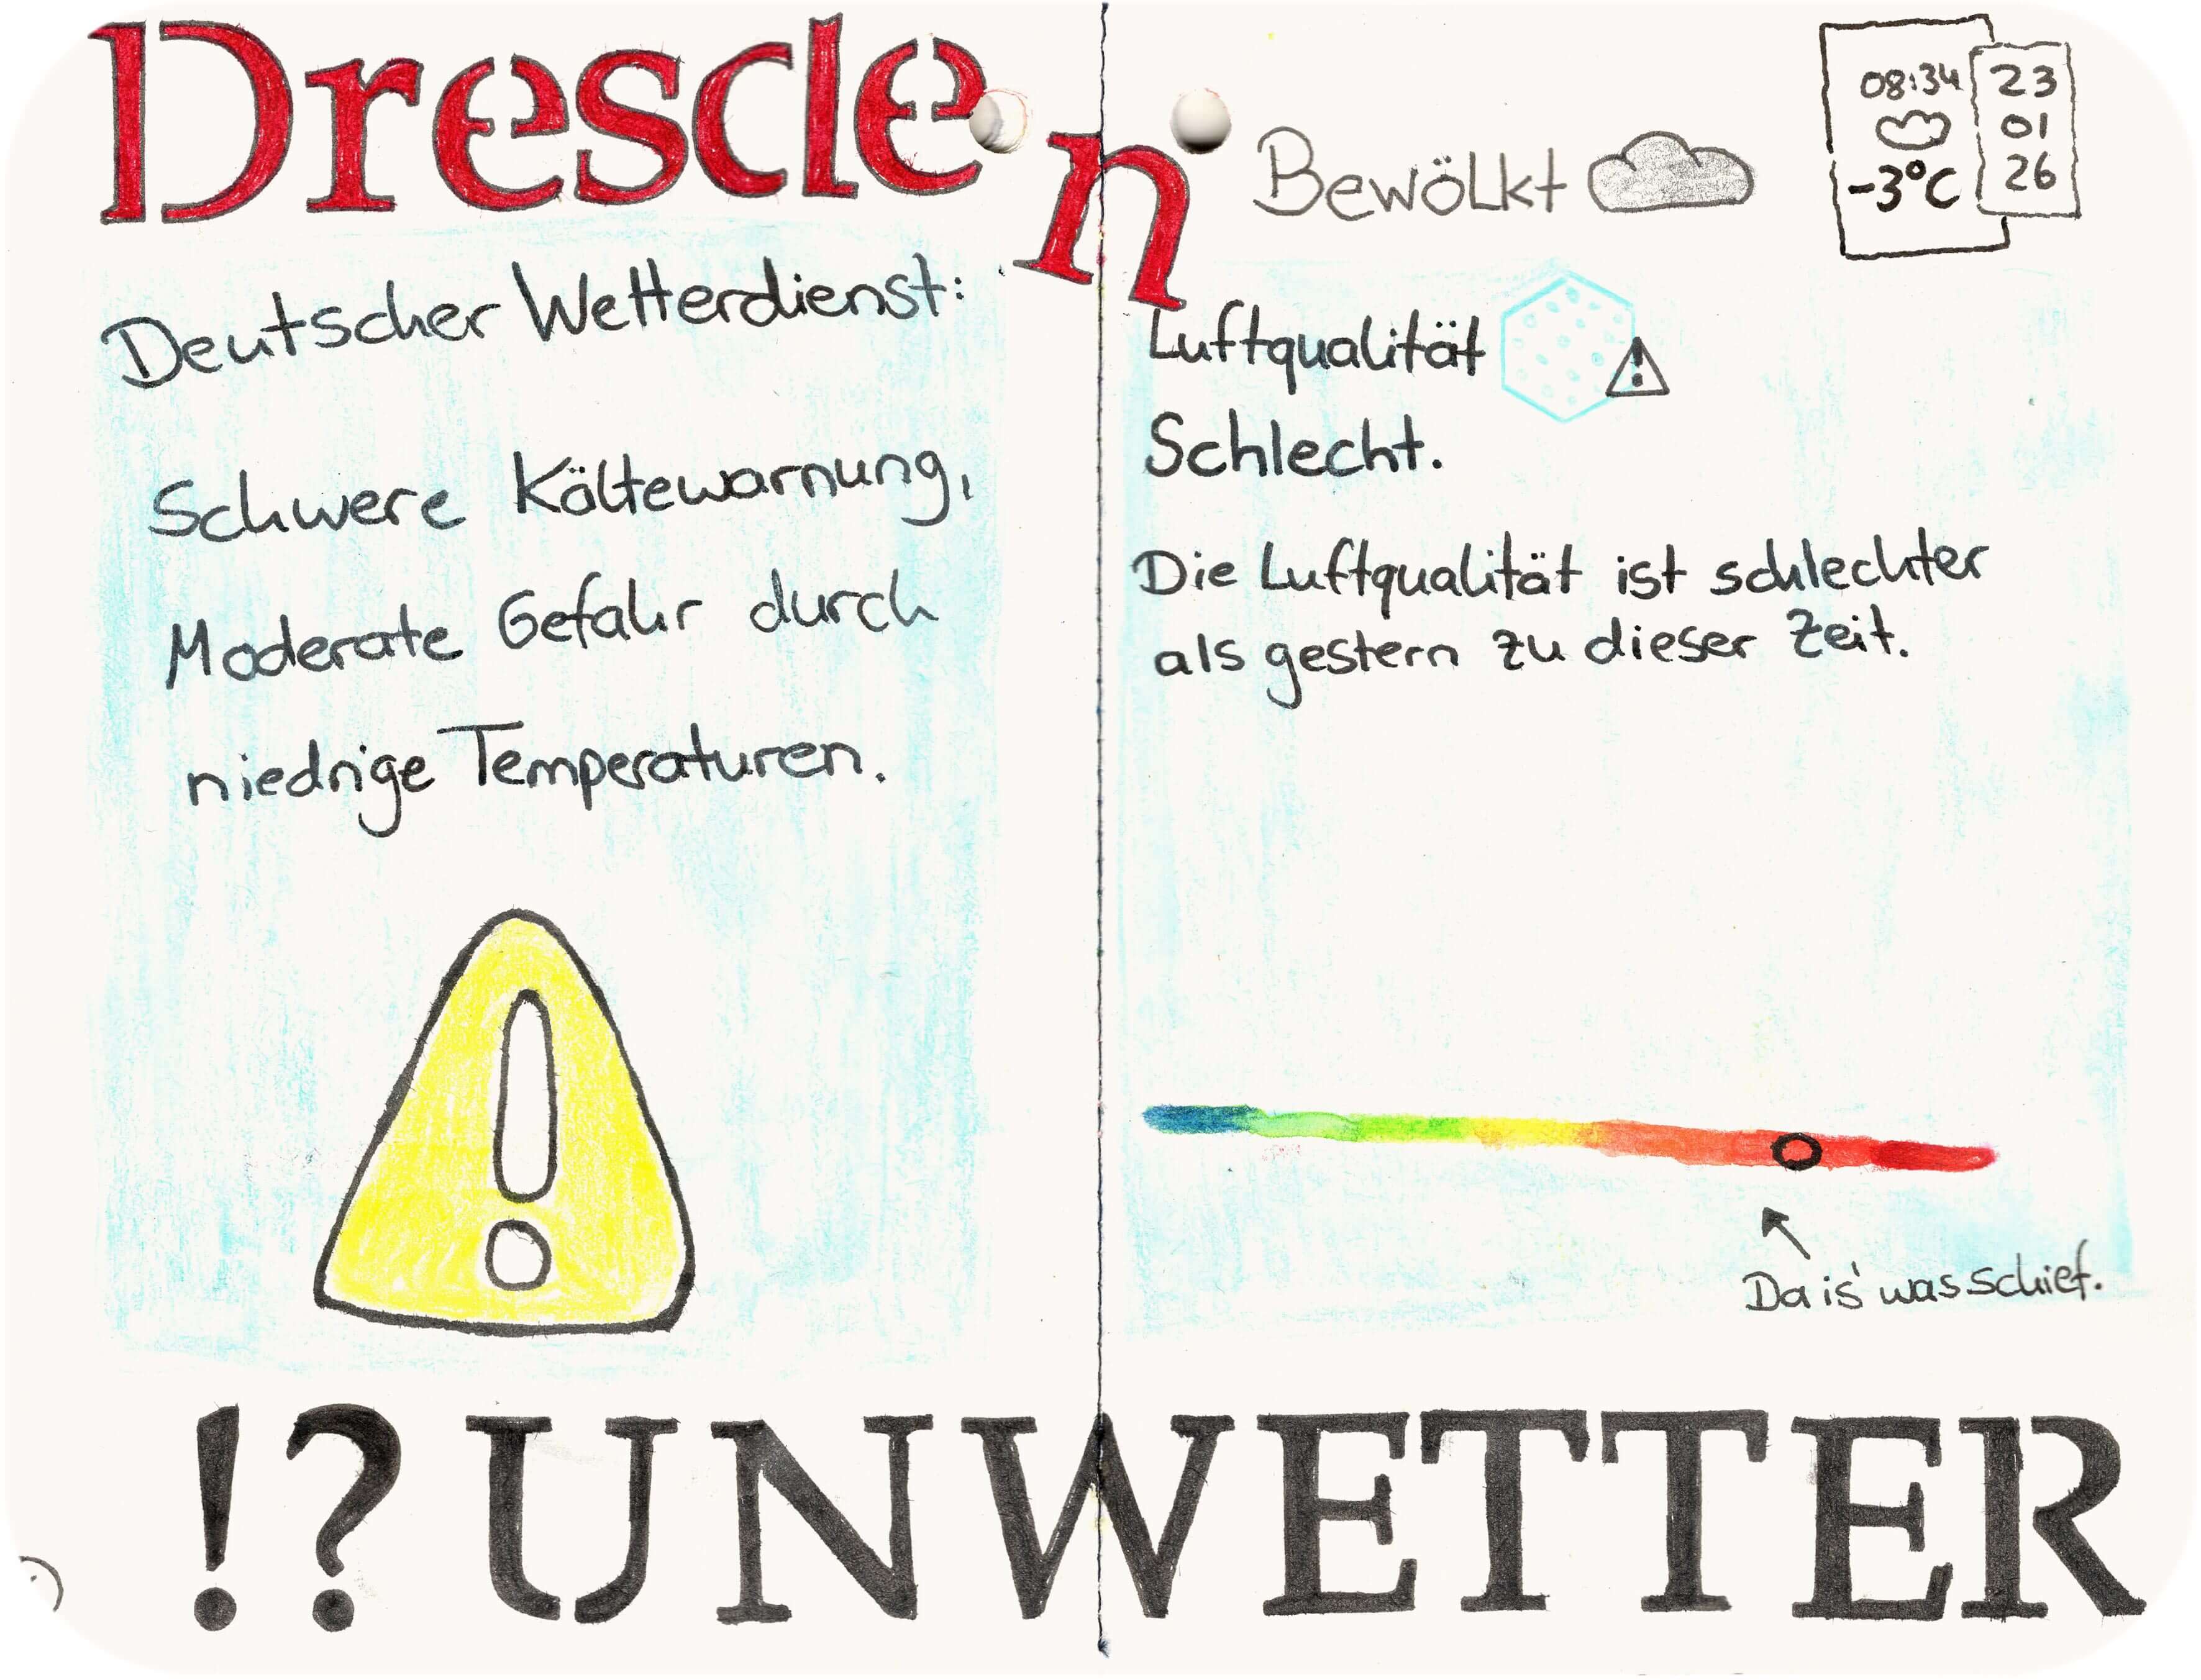 Dresden
Bewölkt
08:34
-3°C
23
01
26
Deutscher Wetterdienst:
Schwere Kältewarnung,
Moderate Gefahr durch
niedrige Temperaturen.
Luftqualität
Schlecht.
Die Luftqualität ist schlechter
als gestern zu dieser Zeit.
Da is' was schief.
!? UNWETTER